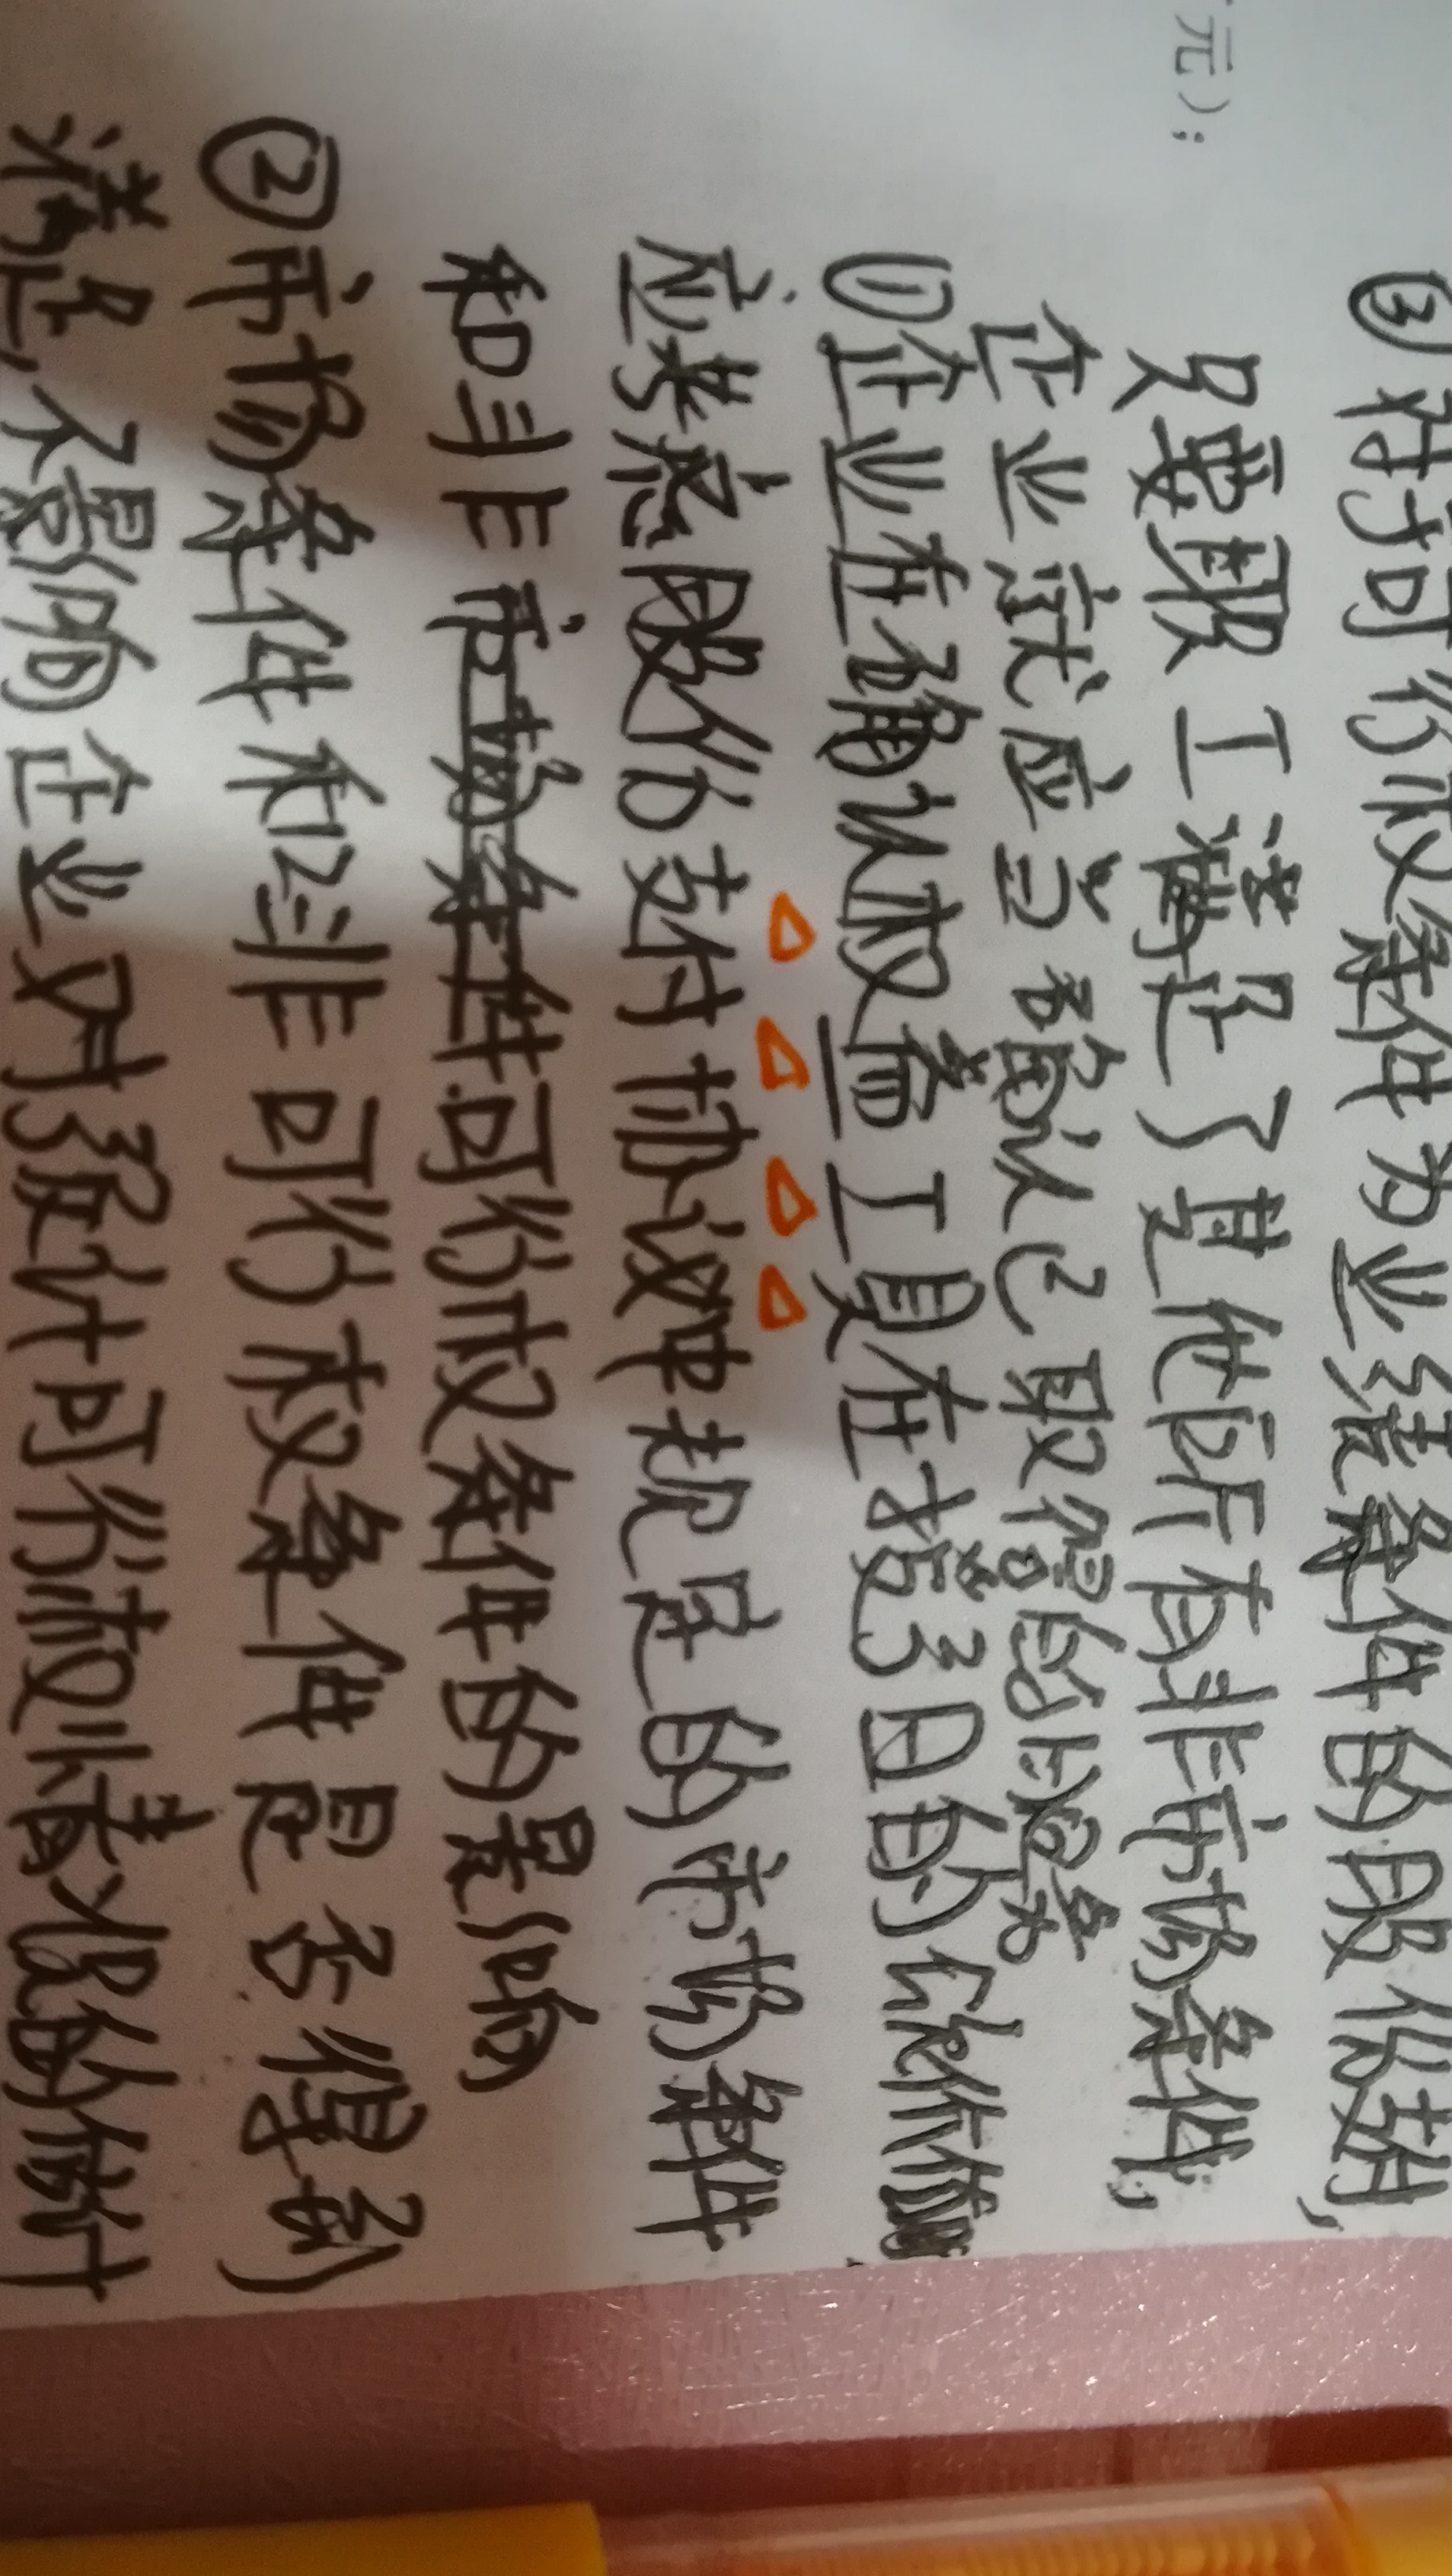 元);
③对于可行权条件为业绩条件的股份支付,
只要职工满足了其他所有非市场条件,
企业就应当确认已取得的服务
①企业在确认权益工具在授予日的公允价值
应考虑股份支付协议中规定的市场条件
和非可行权条件的影响
②市场条件和非可行权条件是否得到
满足,不影响企业对预计可行权情况的估计